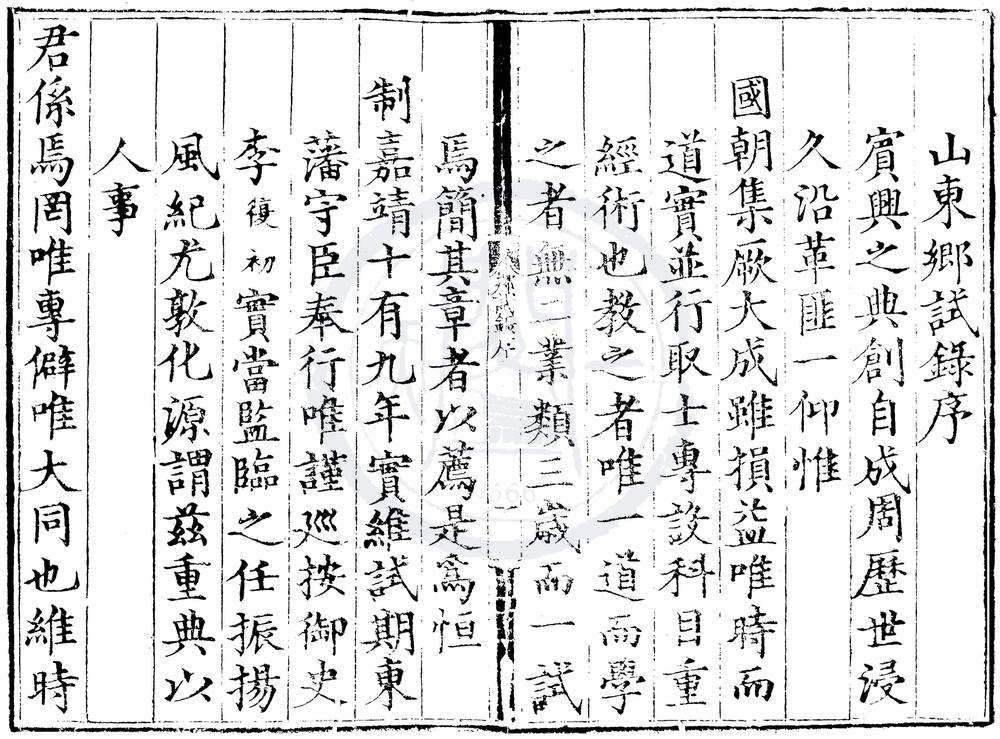 山東鄉試錄序
賓興之典創自成周歷世浸
久沿革匪一仰惟
國朝集厥大成雖損益唯時而
道實並行取士專設科目重
經術也教之者唯一道而學
之者無二業類三歲而一試
焉簡其章者以薦是爲恒
制嘉靖十有九年實維試期東
藩宇臣奉行唯謹廵按御史
李復初實當監臨之任振揚
風紀尤敦化源謂茲重典以
人事
君係焉罔唯專僻唯大同也維時